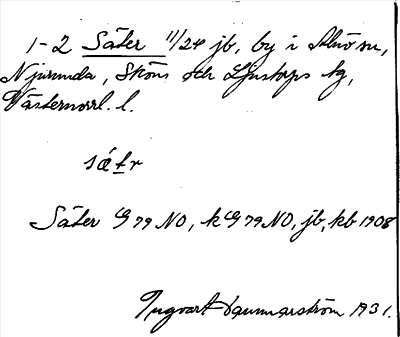 1-2 Säter 11/24 jb, by i Alnö sn,
Njurunda, Sköns och Ljustorps tg,
Västernorrl. l.
sǽtr
Säter G 79 NO, k G 79 NO, jb, kb 1908
Ingvart Dannarström 1931.